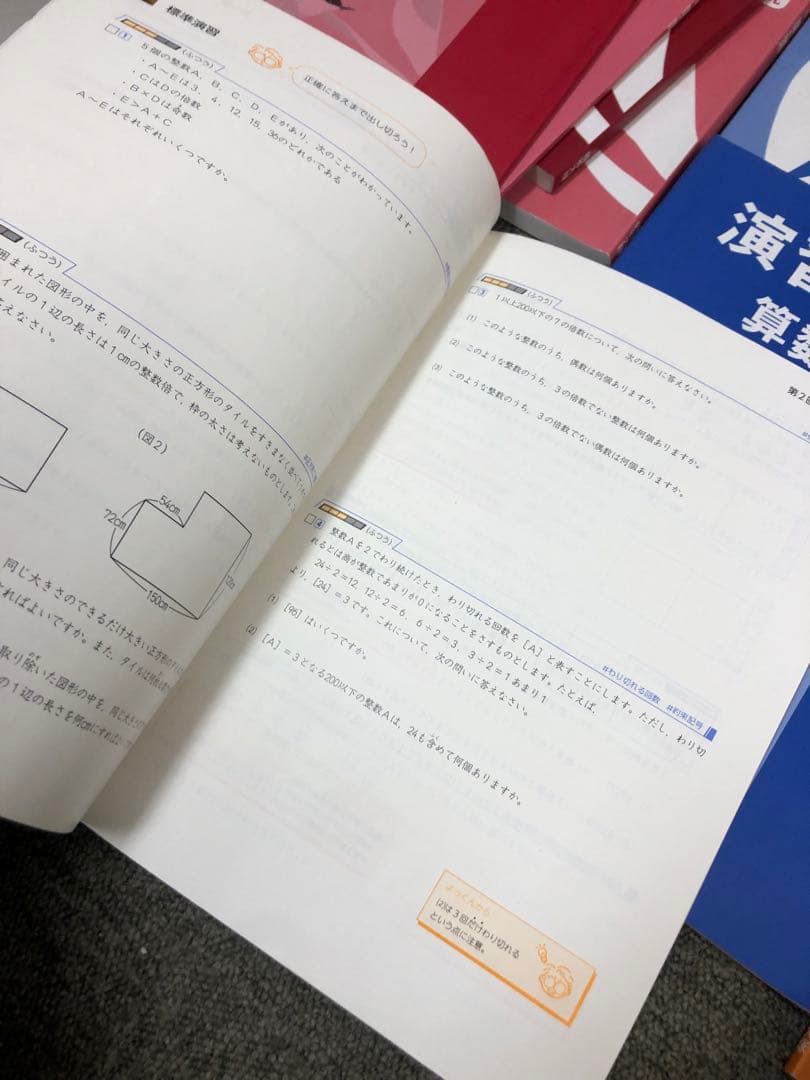 標準演習
(ふつう)
1
5個の整数A、B、C、D、Eがあり、次のことがわかっています。
・A～Eは3、4、12、15、36のどれかである
・CはDの倍数
・B×Dは奇数
・E＞A＋C
A～Eはそれぞれいくつですか。
正確に答えまで出し切ろう！
(ふつう)
囲まれた図形の中を、同じ大きさの正方形のタイルをすきまなく並べて
イルの1辺の長さは1cmの整数倍で、枠の太さは考えないものとします。
答えなさい。
(図2)
54cm
72cm
150cm
同じ大きさのできるだけ大きい正方形の
ればよいですか。また、タイルは何枚
取り除いた図形の中を、同じ大きさの
の1辺の長さを何cmにすればよい
(ふつう)
3
1以上200以下の7の倍数について、次の問いに答えなさい。
(1) このような整数のうち、偶数は何個ありますか。
(2) このような整数のうち、3の倍数でない整数は何個ありますか。
(3) このような整数のうち、3の倍数でない偶数は何個ありますか。
(ふつう)
4
整数Aを2でわり続けたとき、わり切れる回数を［A］と表すことにします。ただし、わり切
れるとは商が整数であまりが0になることをさすものとします。たとえば、
24÷2＝12、12÷2＝6、6÷2＝3、3÷2＝1あまり1
より、［24］＝3です。これについて、次の問いに答えなさい。
#わり切れる回数 #約束記号
(1) ［96］はいくつですか。
(2) ［A］＝3となる200以下の整数Aは、24も含めて何個ありますか。
(2)は3回だけわり切れる
という点に注意。
演習
算数
第2回